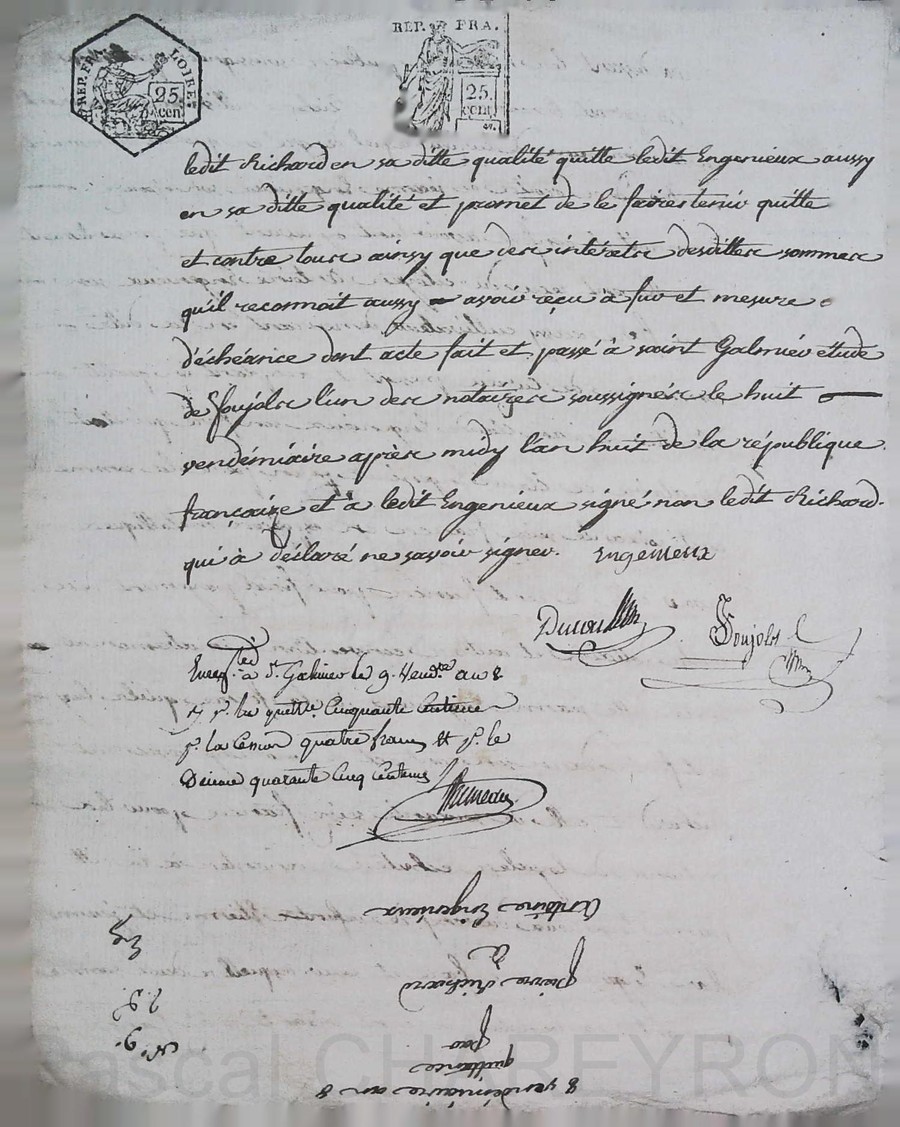 REP. FRA. LOIRE
25 cen.
REP. FRA.
25. cent.
ledit Richard en sa ditte qualité quitte ledit Engenieux aussy
en sa ditte qualité et promet de le faire tenir quitte
et contre tous ainsy que des intérêts desdittes sommes
qu'il reconnoit aussy avoir reçu a fur et mesure
d'échéance dont acte fait et passé à saint Galmier étude
de Soujols l'un des notaires soussignés le huit
vendémiaire après midy l'an huit de la république
françaize et à ledit Engenieux signé non ledit Richard
qui à déclaré ne savoir signer. Engenieux
Soujols
à St. Galmier le 9. Vend.re an 8
cinquante centimes
quatre francs et pr. le
Décime quarante cinq centimes
8 vendémiaire an 8
quittance
par
pierre Richard
à
Antoine Engenieux
N° 9.
Pascal CHAREYRON